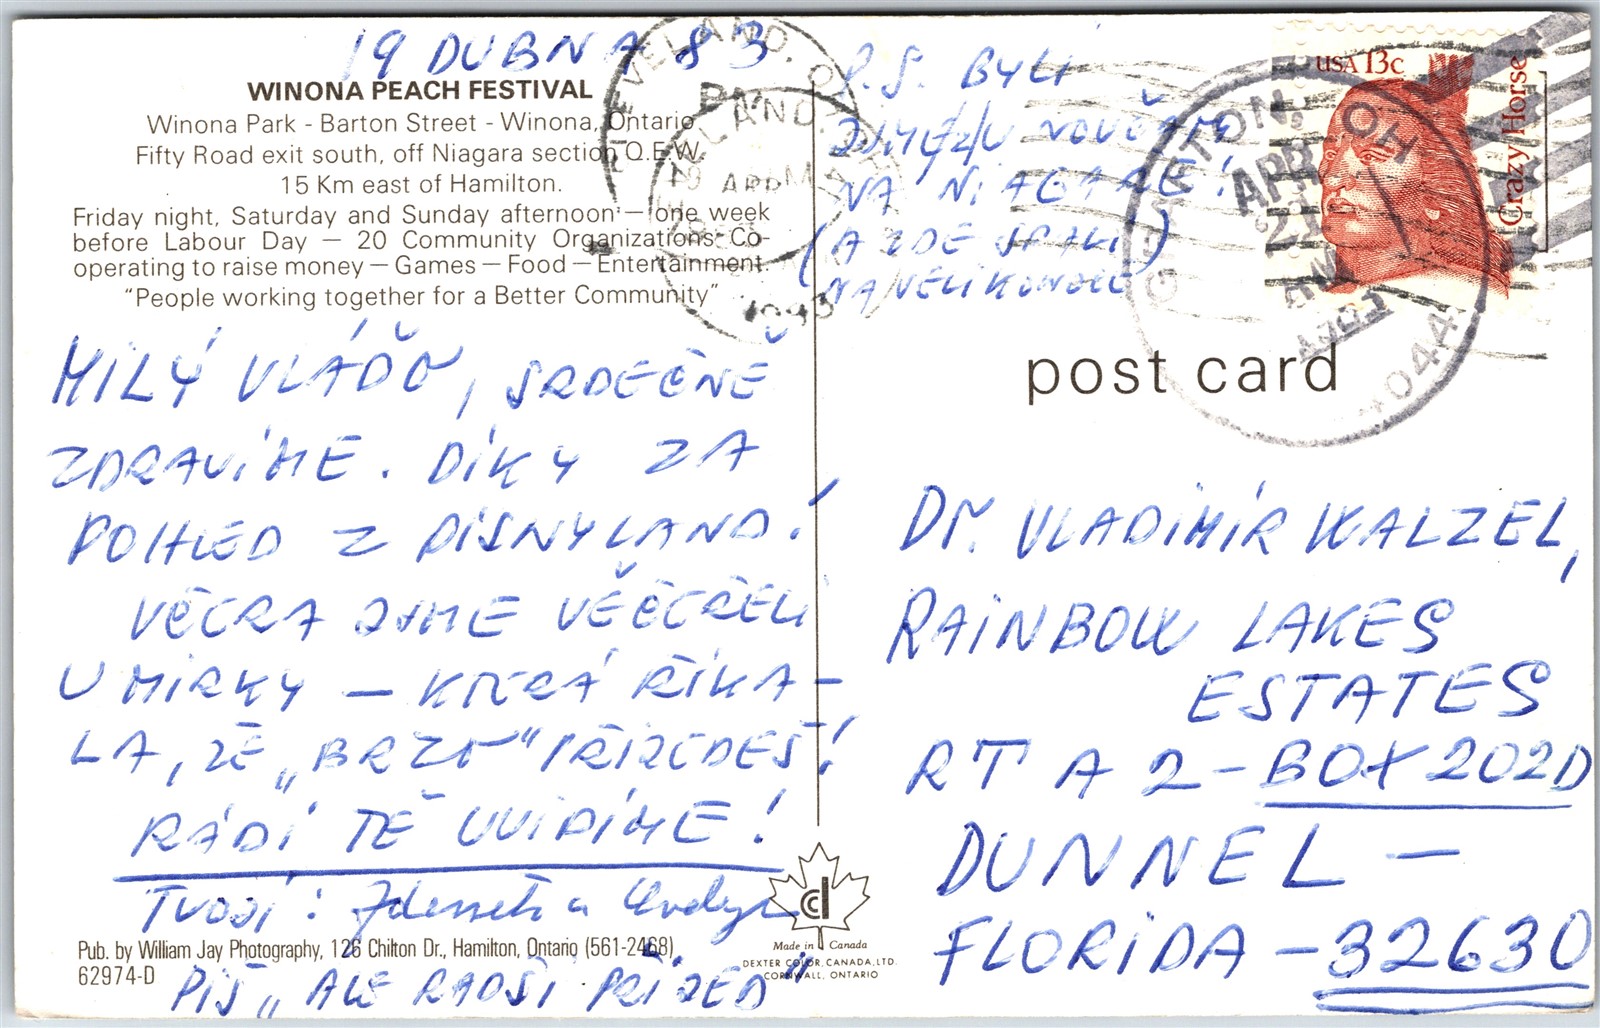 19 DUBNA 83
WINONA PEACH FESTIVAL
Winona Park - Barton Street - Winona, Ontario
Fifty Road exit south, off Niagara section Q.E.W.
15 Km east of Hamilton.
Friday night, Saturday and Sunday afternoon — one week
before Labour Day — 20 Community Organizations Co-
operating to raise money — Games — Food — Entertainment.
“People working together for a Better Community”
MILÝ VLÁĎO, SRDEČNĚ
ZDRAVÍME. DÍKY ZA
POHLED Z DISNYLAND!
VČERA JSME VEČEŘELI
U MIRKY — KTERÁ ŘÍKA-
LA, ŽE „BRZO“ PŘIJEDEŠ!
RÁDI TĚ UVIDÍME!
TVOJI: Zdenek a
PIŠ „ALE RADŠI PŘIJEĎ“
Pub. by William Jay Photography, 126 Chilton Dr., Hamilton, Ontario (561-2468).
62974-D
Made in Canada
DEXTER COLOR, CANADA, LTD.
CORNWALL, ONTARIO
P.S. BYLI
JSME NOVOMI
NA NIAGAŘE!
(A ZDE SPALI)
NA VELIKONOCE
CLEVELAND, O
PM
19 APR
1983
USA 13c
Crazy Horse
OH
APR
21
AM
44044
post card
DR. VLADIMÍR WALZEL,
RAINBOW LAKES
ESTATES
RT A 2 - BOX 202D
DUNNEL —
FLORIDA - 32630